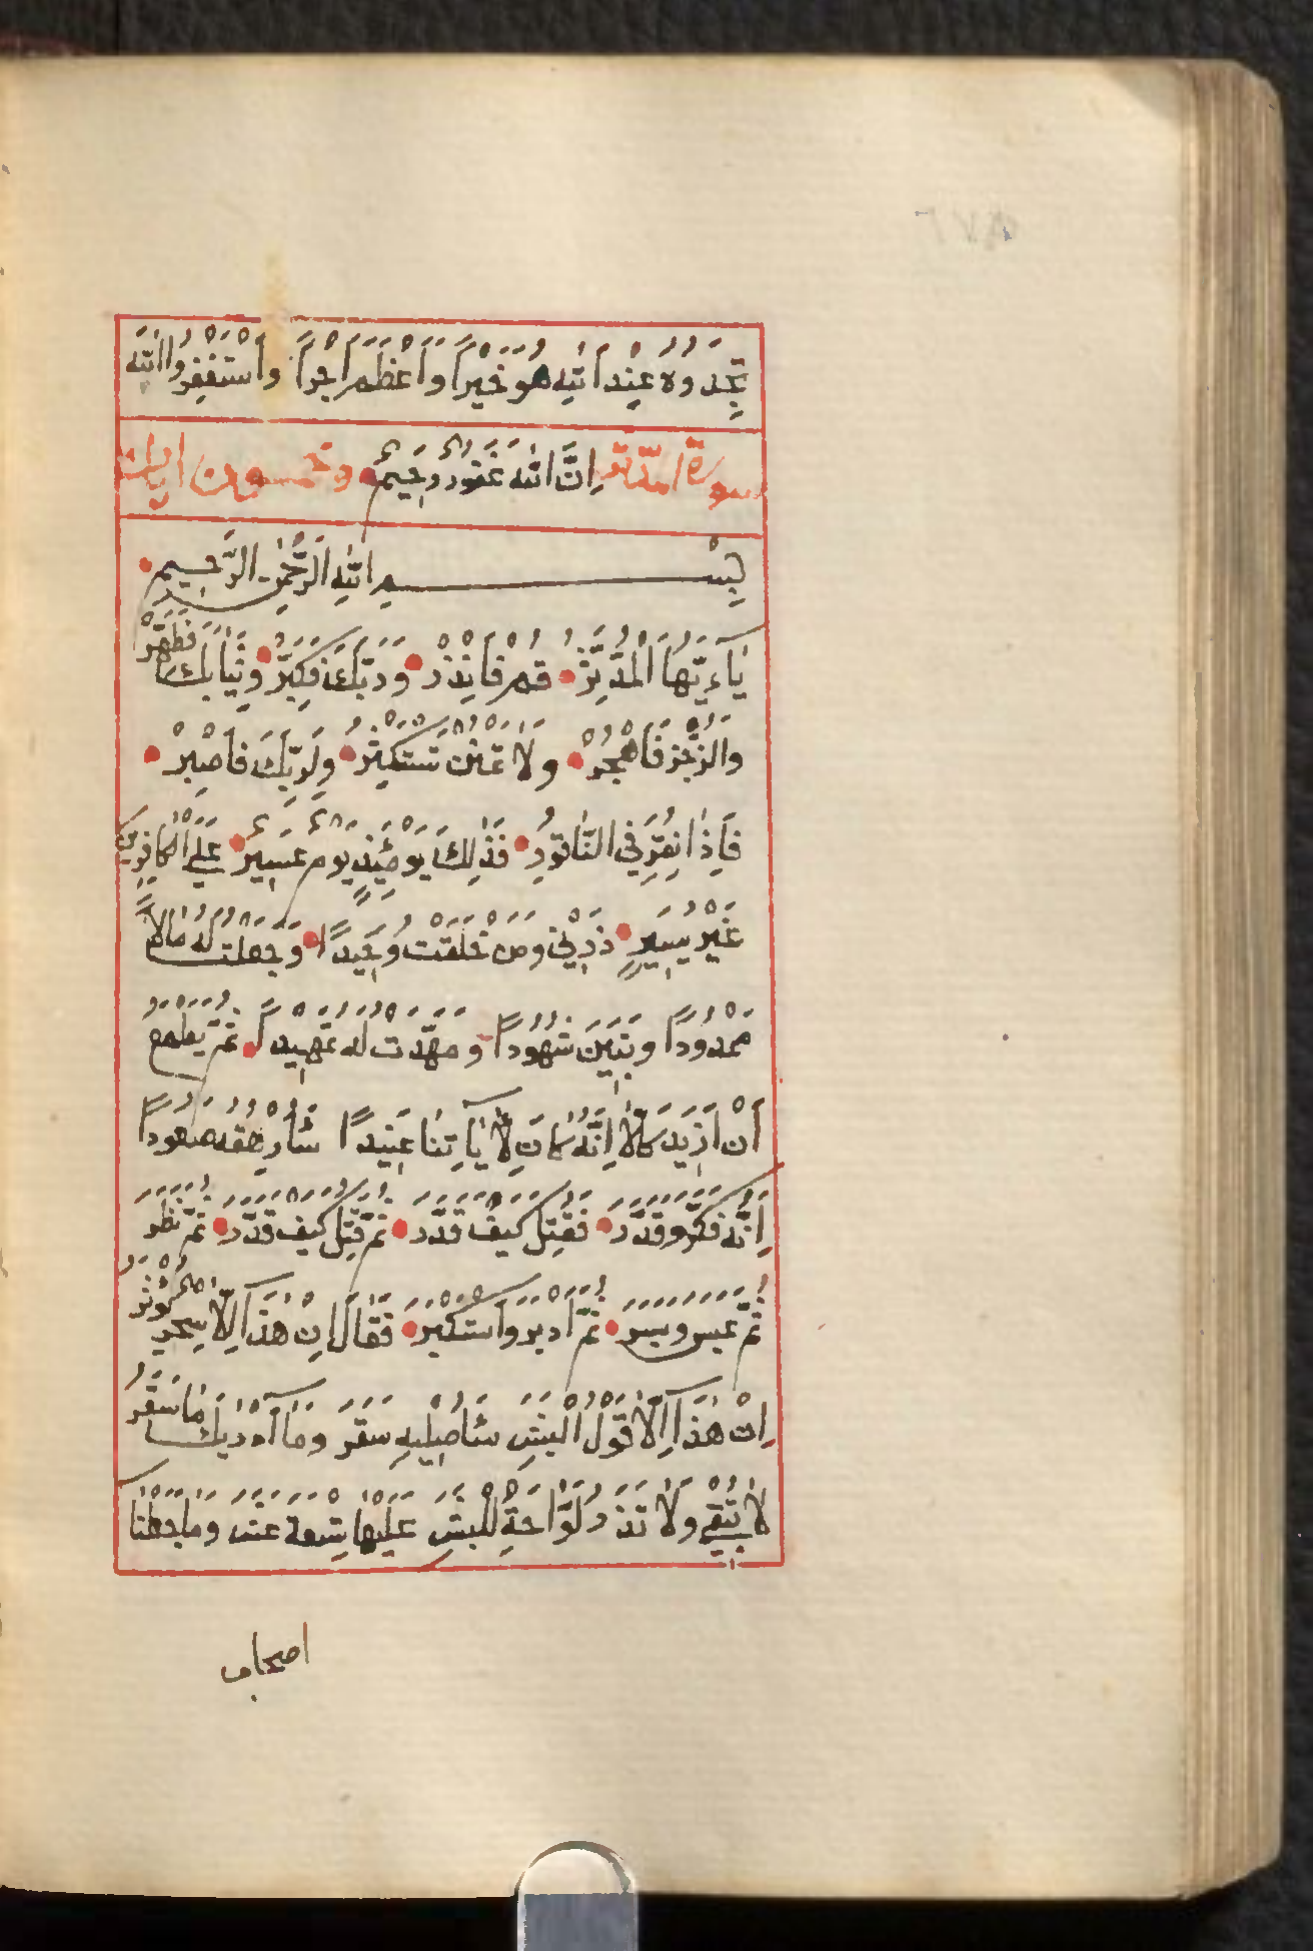 تَجِدُوهُ عِنْدَ اللّٰهِ هُوَ خَيْرًا وَأَعْظَمَ أَجْرًا وَاسْتَغْفِرُوا اللّٰهَ
سورة المدثر إِنَّ اللّٰهَ غَفُورٌ رَحِيمٌ وخمسون ايات
بِسْمِ اللّٰهِ الرَّحْمٰنِ الرَّحِيمِ
يَاءَيُّهَا الْمُدَّثِّرُ قُمْ فَانْذِرْ وَرَبَّكَ فَكَبِّرْ وَثِيَابَكَ فَطَهِّرْ
وَالرُّجْزَ فَاهْجُرْ وَلَا تَمْنُنْ تَسْتَكْثِرُ وَلِرَبِّكَ فَاصْبِرْ
فَإِذَا نُقِرَ فِي النَّاقُورِ فَذٰلِكَ يَوْمَئِذٍ يَوْمٌ عَسِيرٌ عَلَى الْكَافِرِينَ
غَيْرُ يَسِيرٍ ذَرْنِي وَمَنْ خَلَقْتُ وَحِيدًا وَجَعَلْتُ لَهُ مَالًا
مَمْدُودًا وَبَنِينَ شُهُودًا وَمَهَّدْتُ لَهُ تَمْهِيدًا ثُمَّ يَطْمَعُ
أَنْ أَزِيدَ كَلَّا إِنَّهُ كَانَ لِآيَاتِنَا عَنِيدًا سَأُرْهِقُهُ صَعُودًا
إِنَّهُ فَكَّرَ وَقَدَّرَ فَقُتِلَ كَيْفَ قَدَّرَ ثُمَّ قُتِلَ كَيْفَ قَدَّرَ ثُمَّ نَظَرَ
ثُمَّ عَبَسَ وَبَسَرَ ثُمَّ أَدْبَرَ وَاسْتَكْبَرَ فَقَالَ إِنْ هٰذَا إِلَّا سِحْرٌ يُؤْثَرُ
إِنْ هٰذَا إِلَّا قَوْلُ الْبَشَرِ سَأُصْلِيهِ سَقَرَ وَمَا أَدْرٰيكَ مَا سَقَرُ
لَا تُبْقِي وَلَا تَذَرُ لَوَّاحَةٌ لِلْبَشَرِ عَلَيْهَا تِسْعَةَ عَشَرَ وَمَا جَعَلْنَا
اصحاب